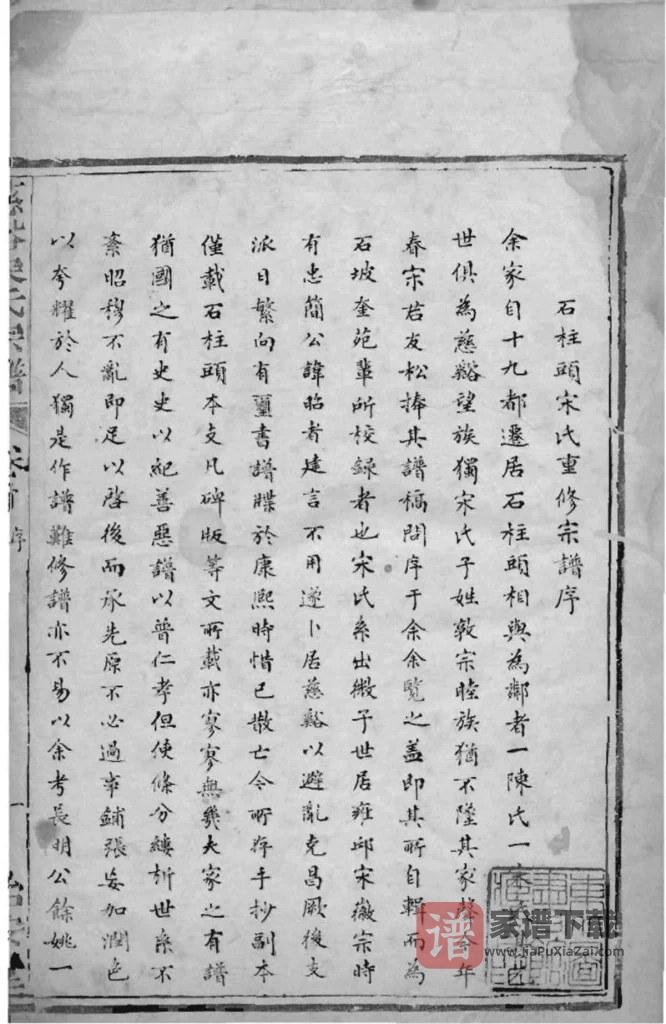 石柱頭宋氏重修宗譜序
余家自十九都遷居石柱頭相與為鄰者一陳氏一宋
世俱為慈谿望族獨宋氏子姓敦宗睦族猶不墜其家聲今年
春宋君友松捧其譜稿問序于余余覽之蓋即其所自輯而為
石坡奎苑輩所校録者也宋氏系出微子世居雍邱宋徽宗時
有忠簡公諱昭者建言不用遂卜居慈谿以避亂克昌厥後支
派日繁向有璽書譜牒於康熙時惜已散亡今所存手抄副本
僅載石柱頭本支凡碑版等文所載亦寥寥無幾夫家之有譜
猶國之有史史以紀善惡譜以普仁孝但使條分縷析世系不
紊昭穆不亂即足以啓後而承先原不必過事鋪張妄加潤色
以夸耀於人獨是作譜難修譜亦不易以余考長明公餘姚一
宋氏宗譜
卷首
序
一
家谱下载
www.JiaPuXiaZai.com
谱